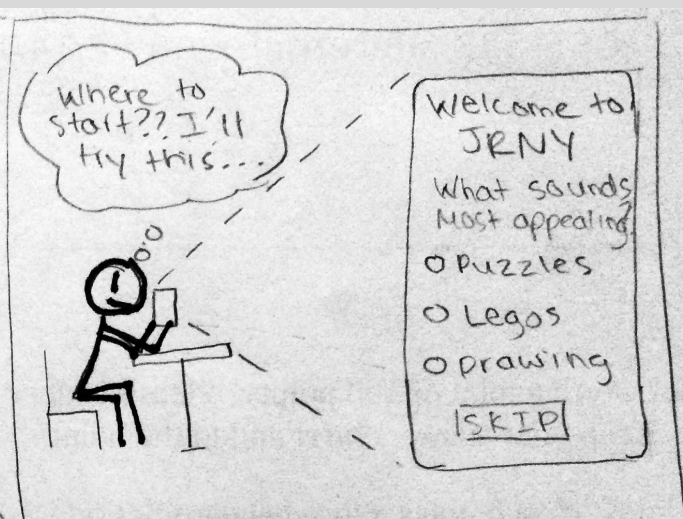 Where to
start?? I'll
try this...
Welcome to
JRNY
What sounds
Most appealing?
Puzzles
Legos
Drawing
SKIP